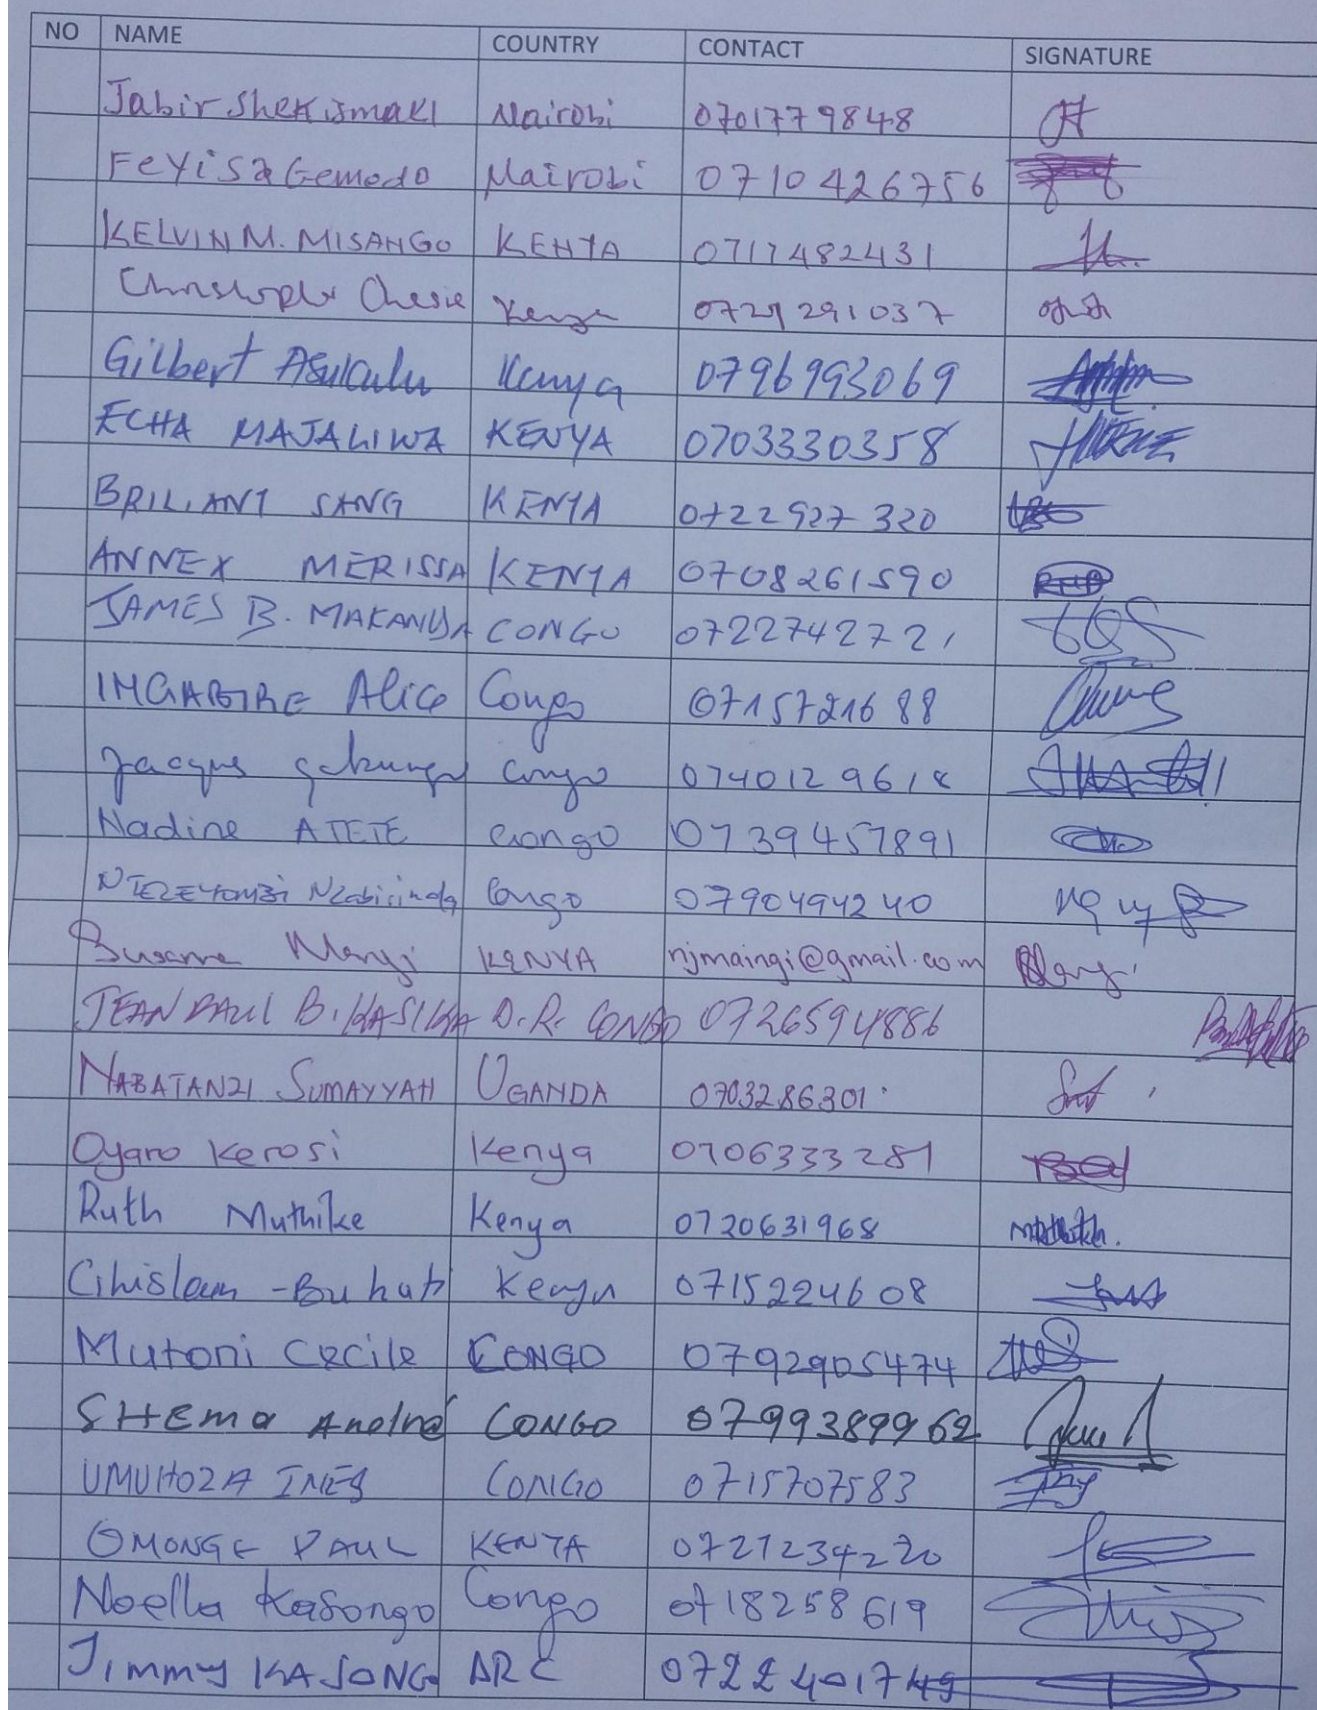 NO NAME COUNTRY CONTACT SIGNATURE
Jabir Shek Ismael Nairobi 0701779848
Feyisa Gemedo Nairobi 0710426756
KELVIN M. MISANGO KENYA 0717482431
Christopher Kenya 0721291037
Gilbert Asukulu Kenya 0796993069
ECHA MAJALIWA KENYA 0703330358
BRILIANT SANG KENYA 0722927320
ANNEX MERISSA KENYA 0708261590
JAMES B. CONGO 0722742721
Alice Congo 0715721688
Congo 0740129618
Nadine ATETE Congo 0739457891
Congo 0790494240
KENYA njmaingi@gmail.com
JEAN PAUL B. KASIKA D.R. CONGO 0726594886
NABATANZI SUMAYYAH UGANDA 0703286301
Oyaro Kerosi Kenya 0706333281
Ruth Muthike Kenya 0720631968
Kenya 0715224608
Mutoni Cecile CONGO 0792905474
SHema André CONGO 0799389962
UMUHOZA INES CONGO 0715707583
OMONGE PAUL KENYA 0721234220
Noella Kasongo Congo 0718258619
Jimmy KASONGO DRC 0722401749